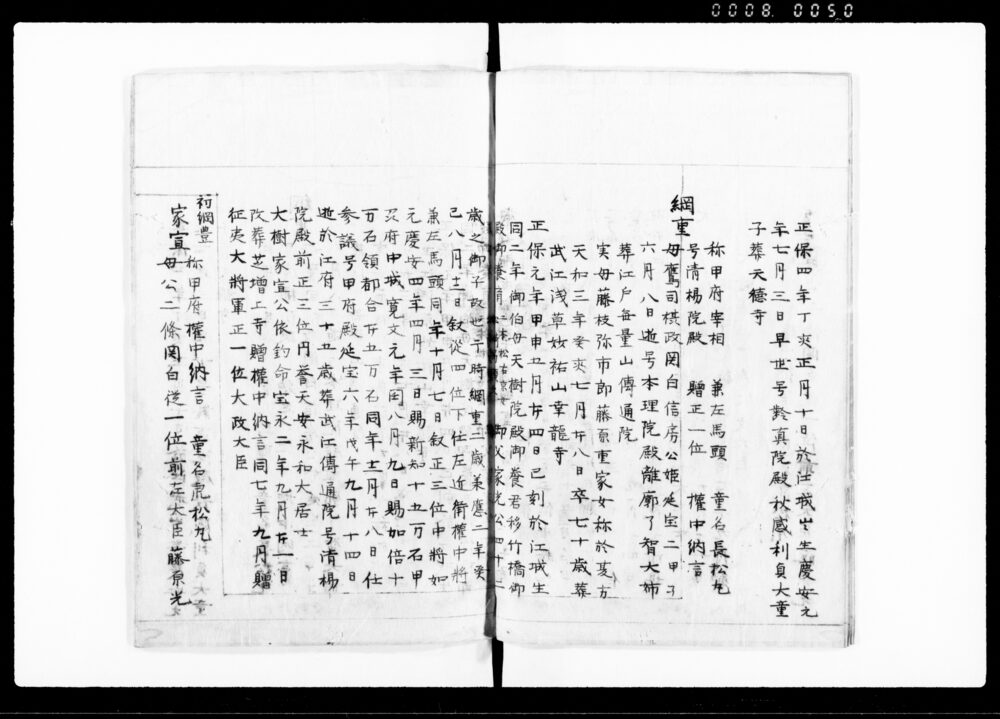 0008 0050
正保四年丁亥正月十日於江城出生慶安元
年七月三日早世号齢真院殿秋感利貞大童
子葬天徳寺
綱重
称甲府宰相 兼左馬頭 童名長松丸
号清楊院殿 贈正一位 権中納言
母鷹司摂政関白信房公姫延宝二甲子
六月八日逝号本理院殿離廓了智大姉
葬江戸無量山傳通院
実母藤枝弥市郎藤原重家女称於夏方
天和三年癸亥七月廿八日卒七十歳葬
武江浅草妙祐山幸龍寺
正保元年甲申五月廿四日巳刻於江城生
同二年御伯母天樹院殿御養君移竹橋御
殿御養育 御父家光公四十二
歳之御子故也于時綱重二歳兼應二年癸
巳八月十二日叙従四位下任左近衛権中将
兼左馬頭同年十月七日叙正三位中将如
元慶安四年四月三日賜新知十五万石甲
府中城寛文元年閏八月九日賜加倍十
万石領都合廿五万石同年十二月廿八日任
参議号甲府殿延宝六年戊午九月十四日
逝於江府三十五歳葬武江傳通院号清楊
院殿前正三位円誉天安永和大居士
大樹家宣公依釣命宝永二年九月廿一日
改葬芝増上寺贈権中納言同七年九月贈
征夷大将軍正一位大政大臣
初綱豊
家宣
称甲府權中納言 童名虎松丸
母公二條関白従一位前左大臣藤原光